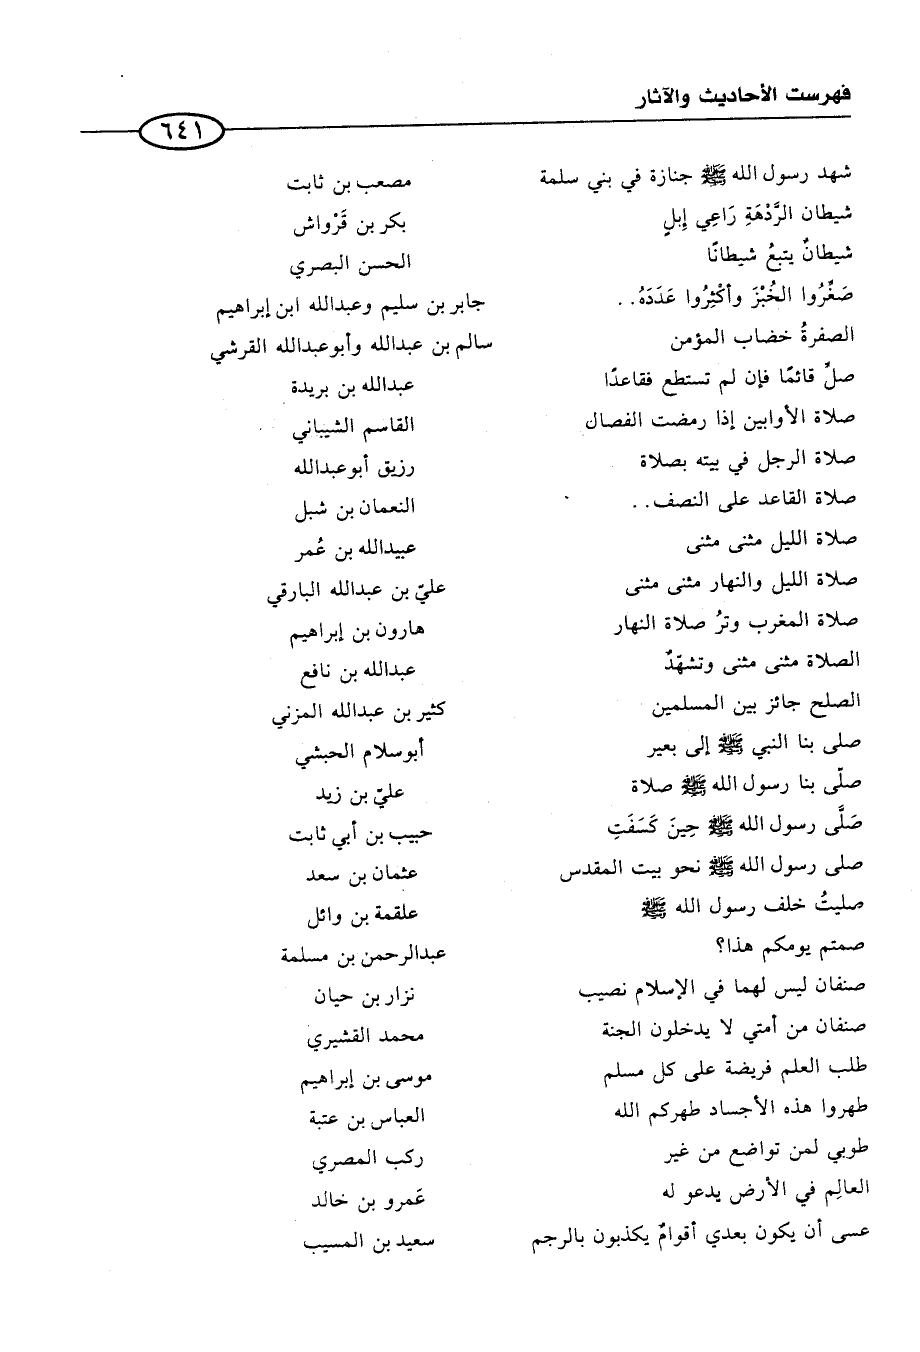 فهرست الأحاديث والآثار
٦٤١
شهد رسول الله ﷺ جنازة في بني سلمة مصعب بن ثابت
شيطان الرَّدْهَةِ رَاعِي إبلٍ بكر بن قَرْواش
شيطانٌ يتبعُ شيطانًا الحسن البصري
صَغِّرُوا الخُبْزَ وأكْثِرُوا عَدَدَهُ.. جابر بن سليم وعبدالله ابن إبراهيم
الصفرةُ خضاب المؤمن سالم بن عبدالله وأبوعبدالله القرشي
صلِّ قائمًا فإن لم تستطع فقاعدًا عبدالله بن بريدة
صلاة الأوابين إذا رمضت الفصال القاسم الشيباني
صلاة الرجل في بيته بصلاة رزيق أبوعبدالله
صلاة القاعد على النصف.. النعمان بن شبل
صلاة الليل مثنى مثنى عبيدالله بن عُمر
صلاة الليل والنهار مثنى مثنى عليّ بن عبدالله البارقي
صلاة المغرب وترُ صلاة النهار هارون بن إبراهيم
الصلاة مثنى مثنى وتشهّدٌ عبدالله بن نافع
الصلح جائز بين المسلمين كثير بن عبدالله المزني
صلى بنا النبي ﷺ إلى بعير أبوسلام الحبشي
صلّى بنا رسول الله ﷺ صلاة عليّ بن زيد
صَلَّى رسول الله ﷺ حِينَ كَسَفَتِ حبيب بن أبي ثابت
صلى رسول الله ﷺ نحو بيت المقدس عثمان بن سعد
صليتُ خلف رسول الله ﷺ علقمة بن وائل
صمتم يومكم هذا؟ عبدالرحمن بن مسلمة
صنفان ليس لهما في الإسلام نصيب نزار بن حيان
صنفان من أمتي لا يدخلون الجنة محمد القشيري
طلب العلم فريضة على كل مسلم موسى بن إبراهيم
طهروا هذه الأجساد طهركم الله العباس بن عتبة
طوبي لمن تواضع من غير ركب المصري
العالِم في الأرض يدعو له عَمرو بن خالد
عسى أن يكون بعدي أقوامٌ يكذبون بالرجم سعيد بن المسيب